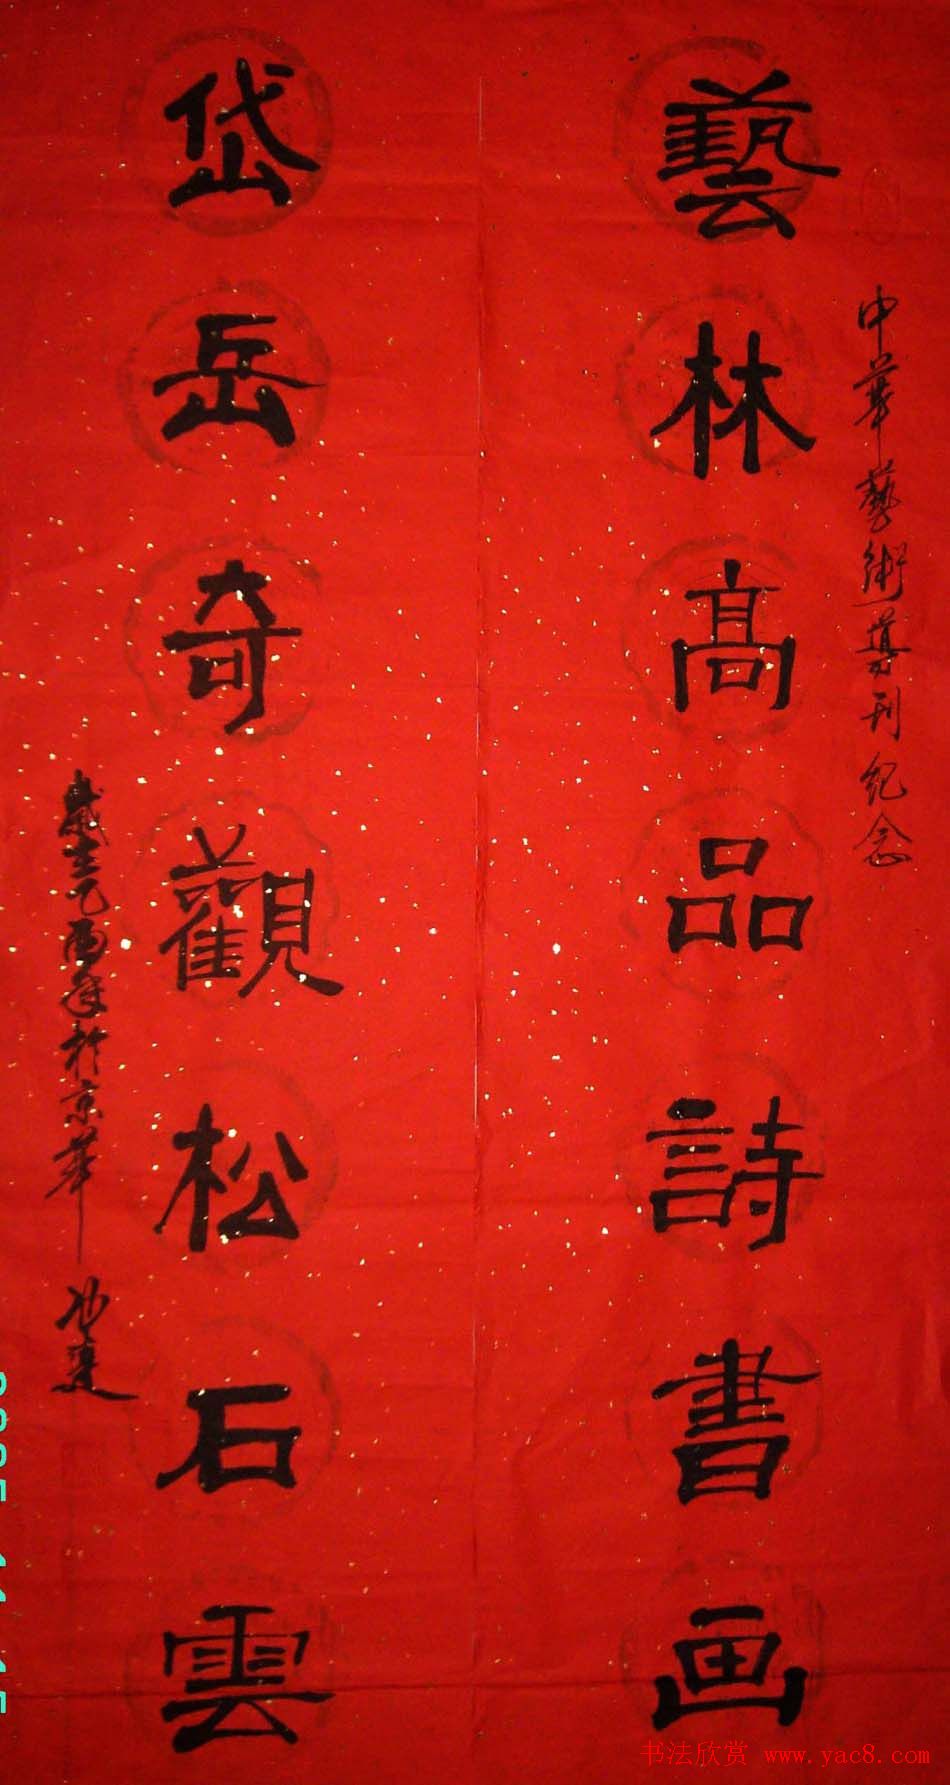 中華藝術導刊紀念
藝林高品詩書画
岱岳奇觀松石雲
歲在乙酉年於京華
书法欣赏 www.yac8.com